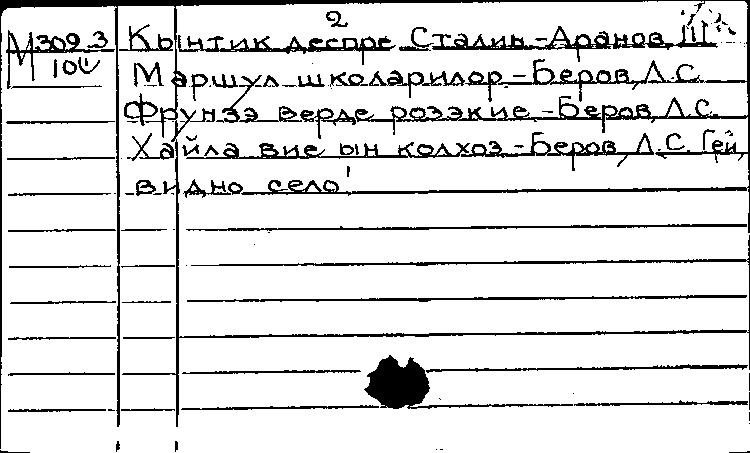 2
M309.3 Кынтик деспре Сталин-Аранов, Ш.
10 Маршул школарилор-Беров, Л.С.
Фрунзэ верде розэкие-Беров, Л.С.
Хайла вие ын колхоз-Беров, Л.С. Гей,
видно село!